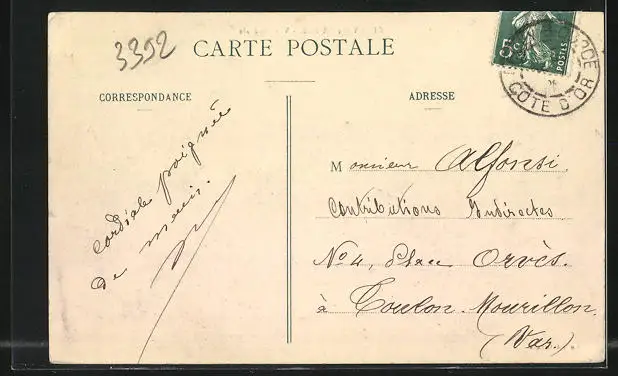 3392
CARTE POSTALE
5c
POSTES
COTE D'OR
CORRESPONDANCE
ADRESSE
Cordiale poignée
de main.
Monsieur Alfonsi
Contributions Indirectes
No 4, Place Orvès.
à Toulon-Mourillon
(Var.)